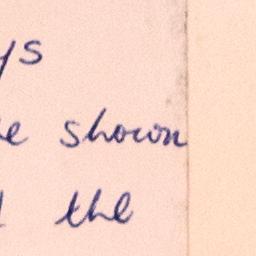 ys
e shown
the